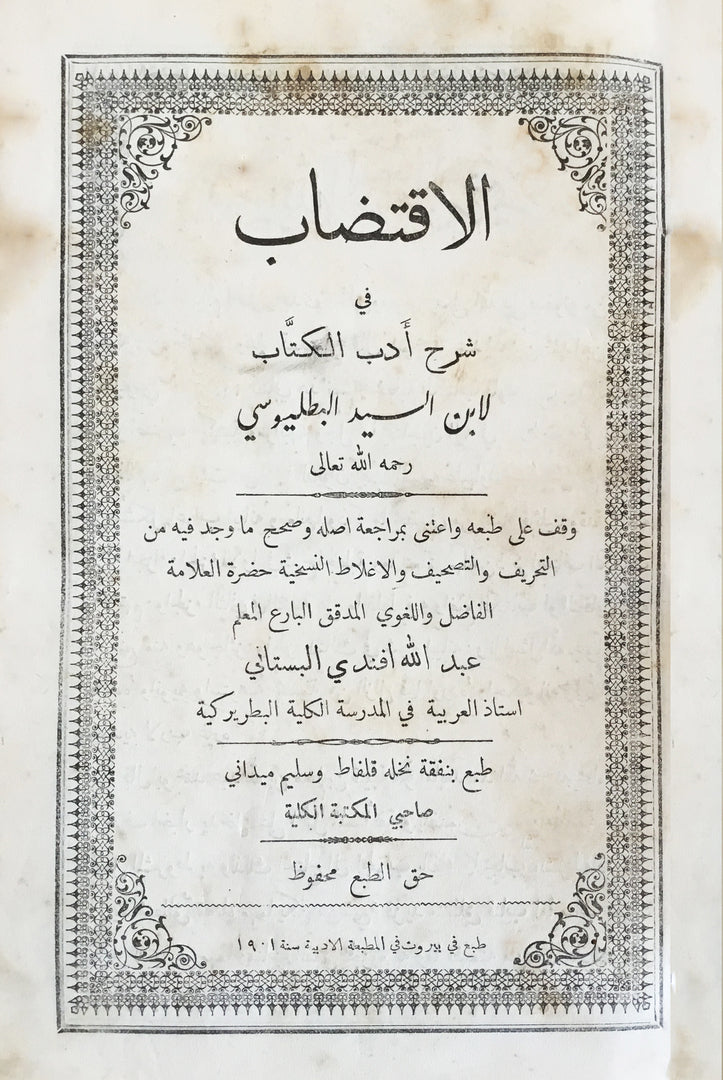 الاقتضاب
في
شرح أدب الكتَّاب
لابن السيد البطليوسي
رحمه الله تعالى
وقف على طبعه واعتنى بمراجعة اصله وصحح ما وجد فيه من
التحريف والتصحيف والاغلاط النسخية حضرة العلامة
الفاضل واللغوي المدقق البارع المعلم
عبد الله افندي البستاني
استاذ العربية في المدرسة الكلية البطريركية
طبع بنفقة نخله قلفاط وسليم ميداني
صاحبي المكتبة الكلية
حق الطبع محفوظ
طبع في بيروت في المطبعة الادبية سنة ١٩٠١